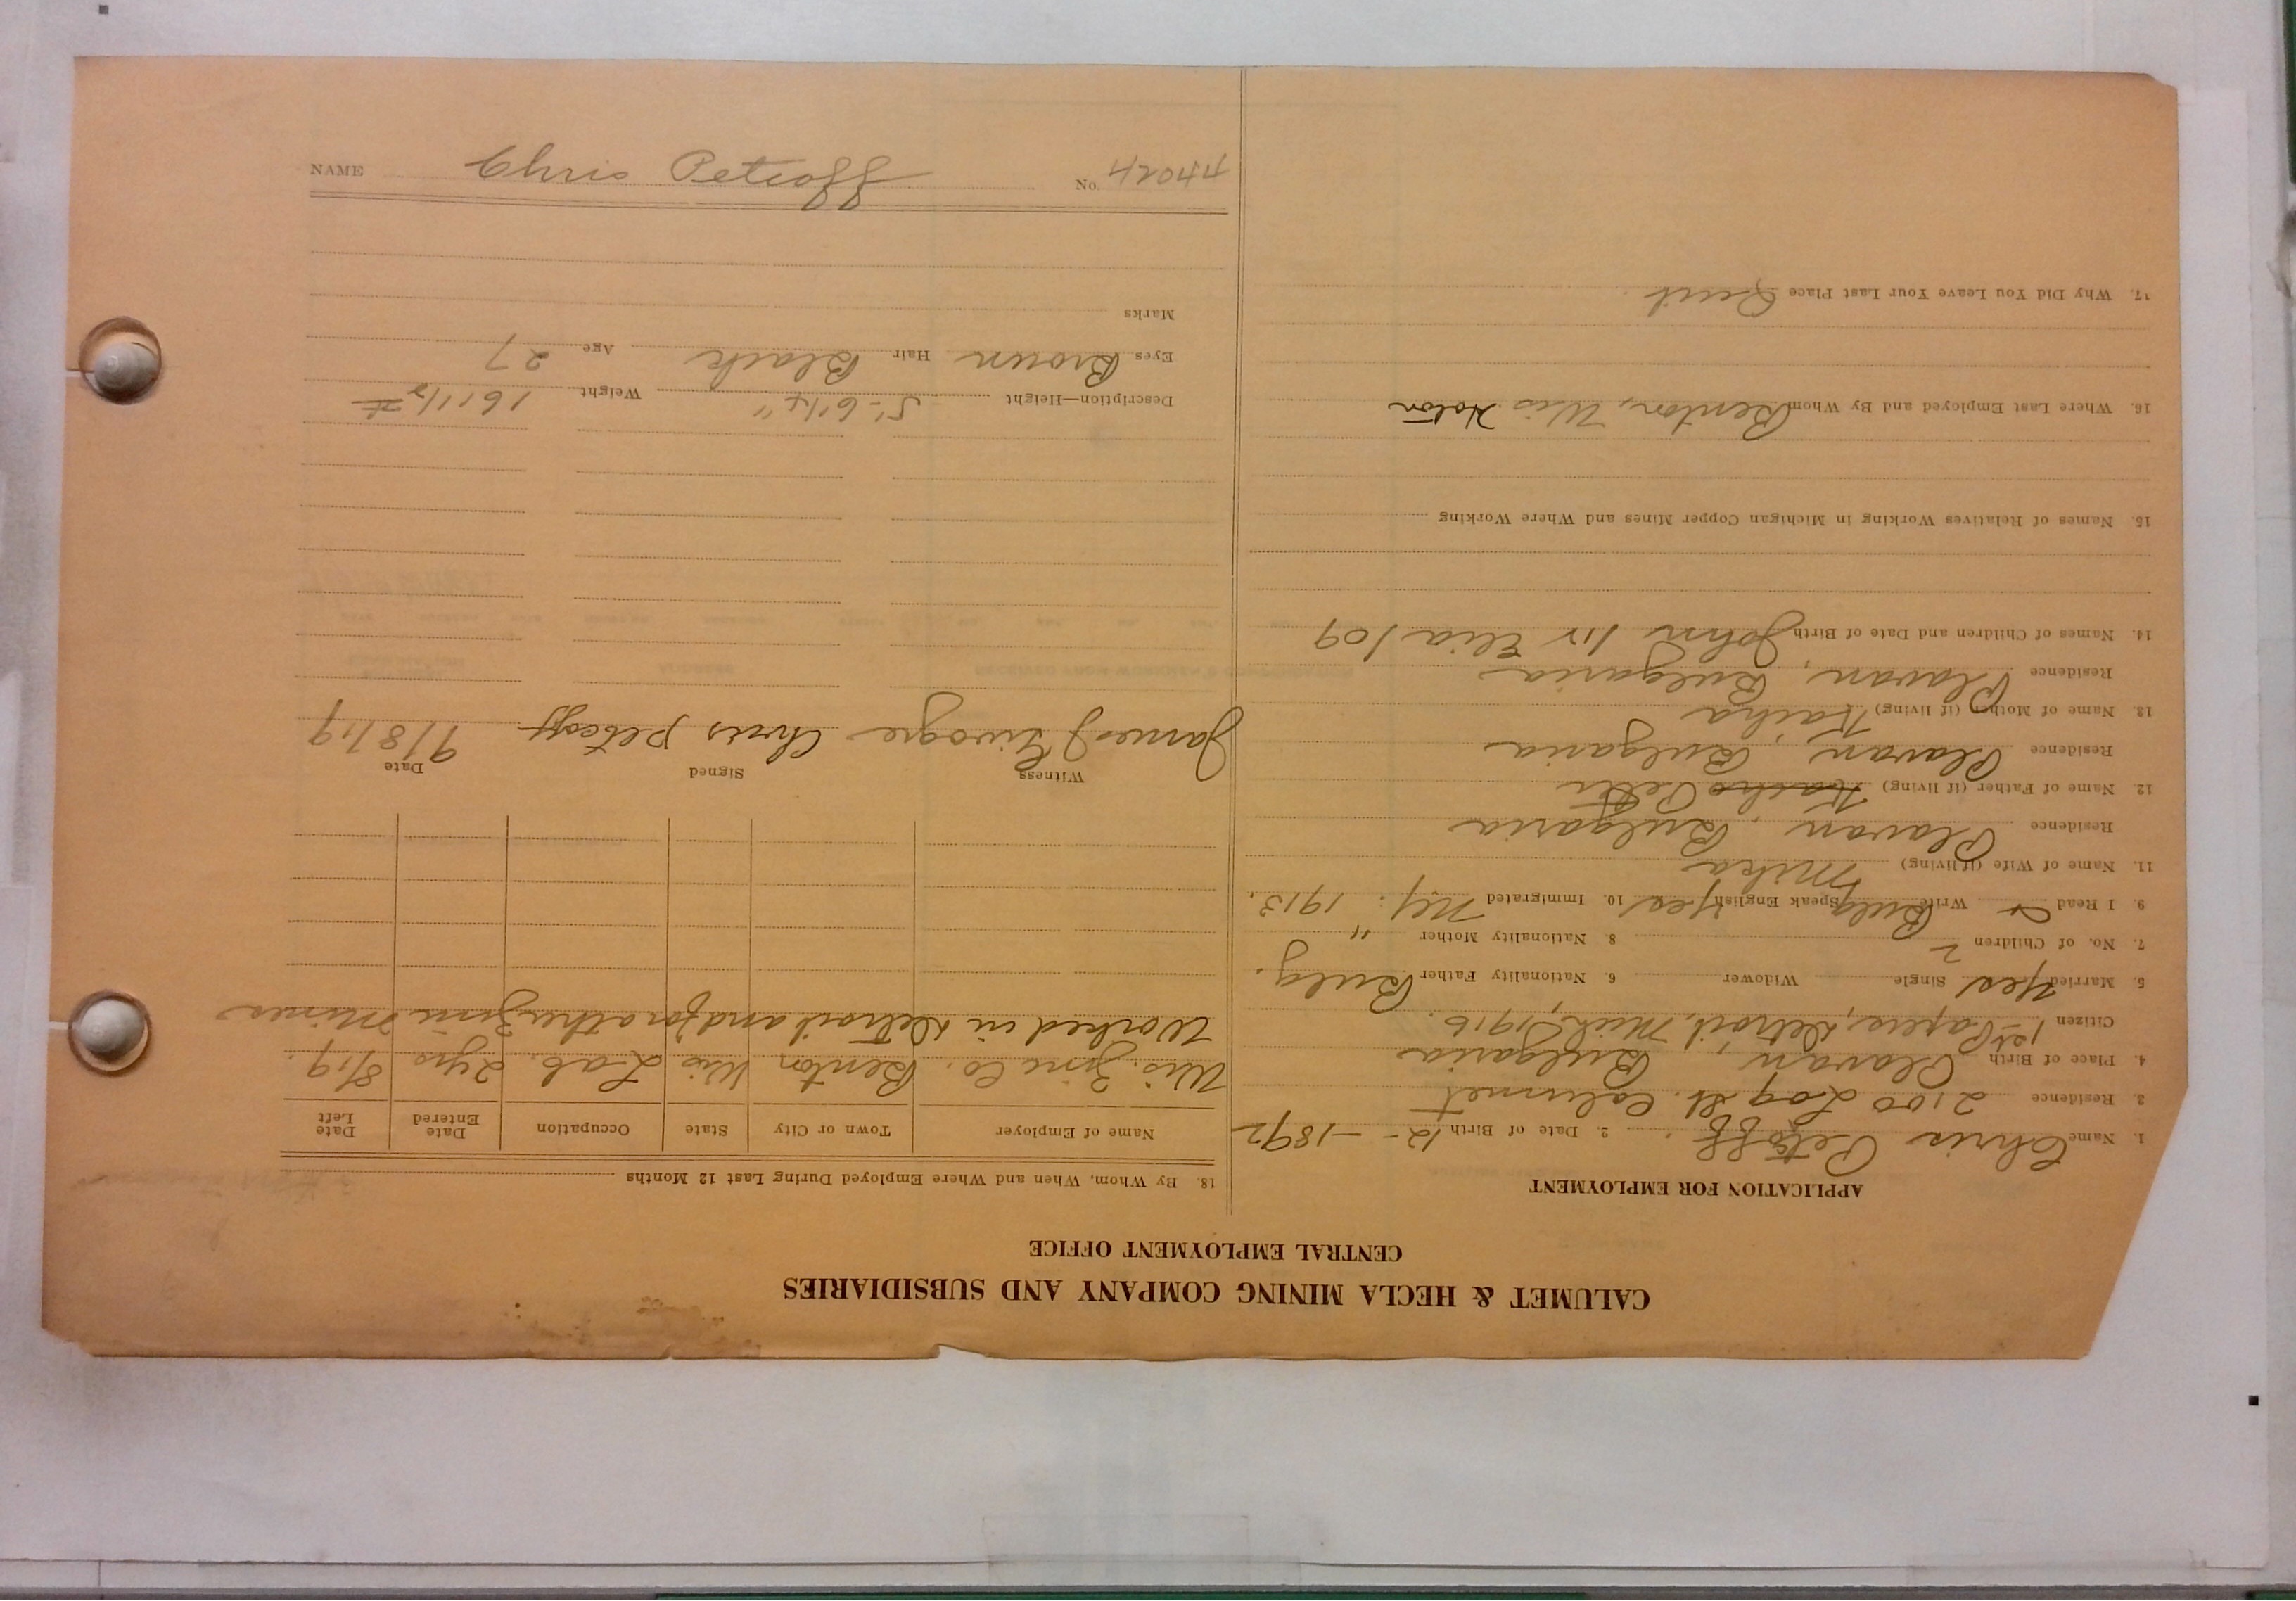 CALUMET & HECLA MINING COMPANY AND SUBSIDIARIES
CENTRAL EMPLOYMENT OFFICE
APPLICATION FOR EMPLOYMENT
1. Name Chris Petcoff. 2. Date of Birth 12 - - 1892
3. Residence 2100 Log St. Calumet
4. Place of Birth Plavan, Bulgaria
Citizen 1st Papers, Detroit, Mich, 1916.
5. Married Yes Single Widower 6. Nationality Father Bulg.
7. No. of Children 2 8. Nationality Mother "
9. I Read Write Bulg Speak English Yes 10. Immigrated NY. 1913.
11. Name of Wife (if living) Mika
Residence Plavan, Bulgaria
12. Name of Father (if living) Petko
Residence Plavan, Bulgaria
13. Name of Mother (if living)
Residence Plavan, Bulgaria
14. Names of Children and Date of Birth John 1 Elia /09
15. Names of Relatives Working in Michigan Copper Mines and Where Working
16. Where Last Employed and By Whom Benton, Wis
17. Why Did You Leave Your Last Place Quit.
18. By Whom, When and Where Employed During Last 12 Months
Name of Employer Town or City State Occupation Date Entered Date Left
Wis. Zinc Co. Benton Wis Lab. 2 yrs 8/19.
Worked in Detroit and for other Zinc Mines
Witness Signed Date
James Chris Petcoff 9/8/19
Description—Height 5'-6 1/4" Weight 161 1/2 #
Eyes Brown Hair Black Age 27
Marks
NAME Chris Petcoff No. 42044